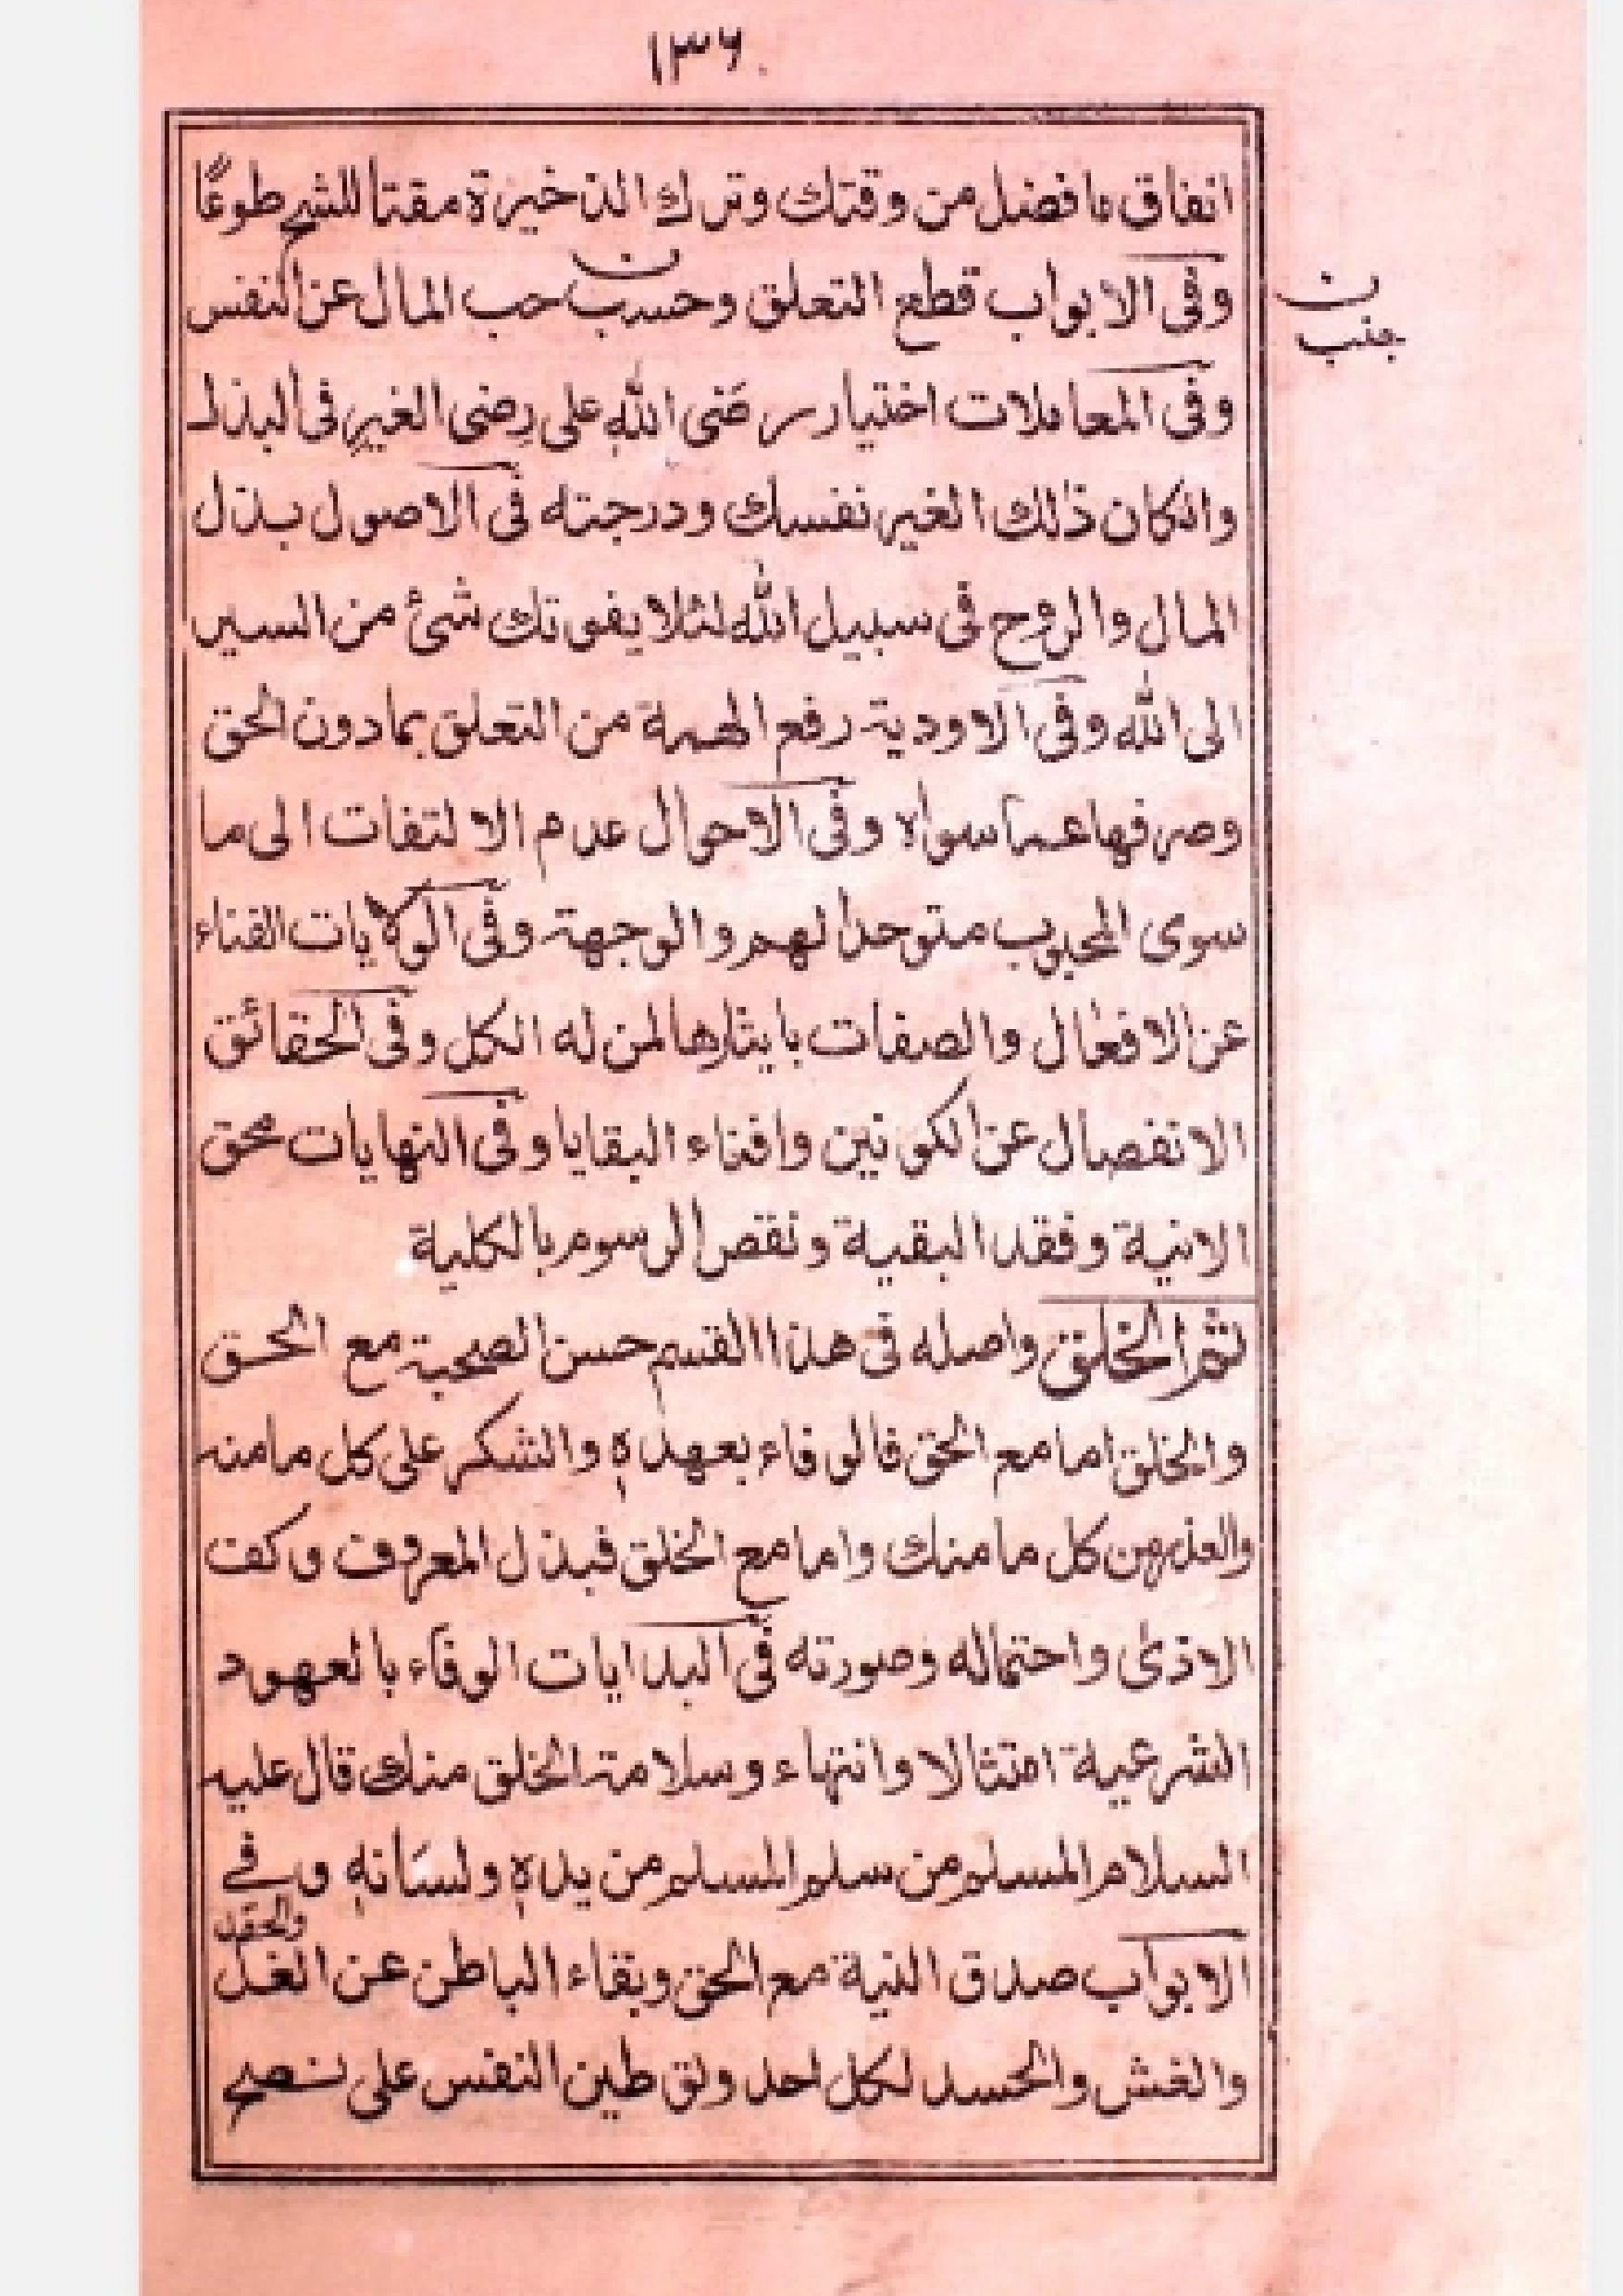 ١٣٦
انفاق ما فضل من وقتك وترك الذخيرة مقتا للشح طوعًا
وفى الابواب قطع التعلق وحسب حب المال عن النفس
ن
جنب
وفى المعاملات اختيار رضى الله على رضى الغير فى البذل
وانكان ذلك الغير نفسك ودرجته فى الاصول بذل
المال والروح فى سبيل الله لئلا يفوتك شئ من السير
الى الله وفى الاودية رفع الهمة من التعلق بمادون الحق
وصرفها عما سواه وفى الاحوال عدم الالتفات الى ما
سوى المحبوب متوحد الهم والوجهة وفى الولايات الفناء
عن الافعال والصفات بايثارها لمن له الكل وفى الحقائق
الانفصال عن الكونين وافناء البقايا وفى النهايات محق
الانية وفقد البقية ونقص الرسوم بالكلية
ثم الخلق واصله فى هذا القسم حسن الصحبة مع الحق
والخلق اما مع الحق فالوفاء بعهده والشكر على كل ما منه
والعذر من كل ما منك واما مع الخلق فبذل المعروف وكف
الاذى واحتماله وصورته فى البدايات الوفاء بالعهود
الشرعية امتثالا وانتهاء وسلامة الخلق منك قال عليه
السلام المسلم من سلم المسلم من يده ولسانه وفي
والحقد
الابواب صدق النية مع الحق وبقاء الباطن عن الغل
والغش والحسد لكل احد وتوطين النفس على نصح